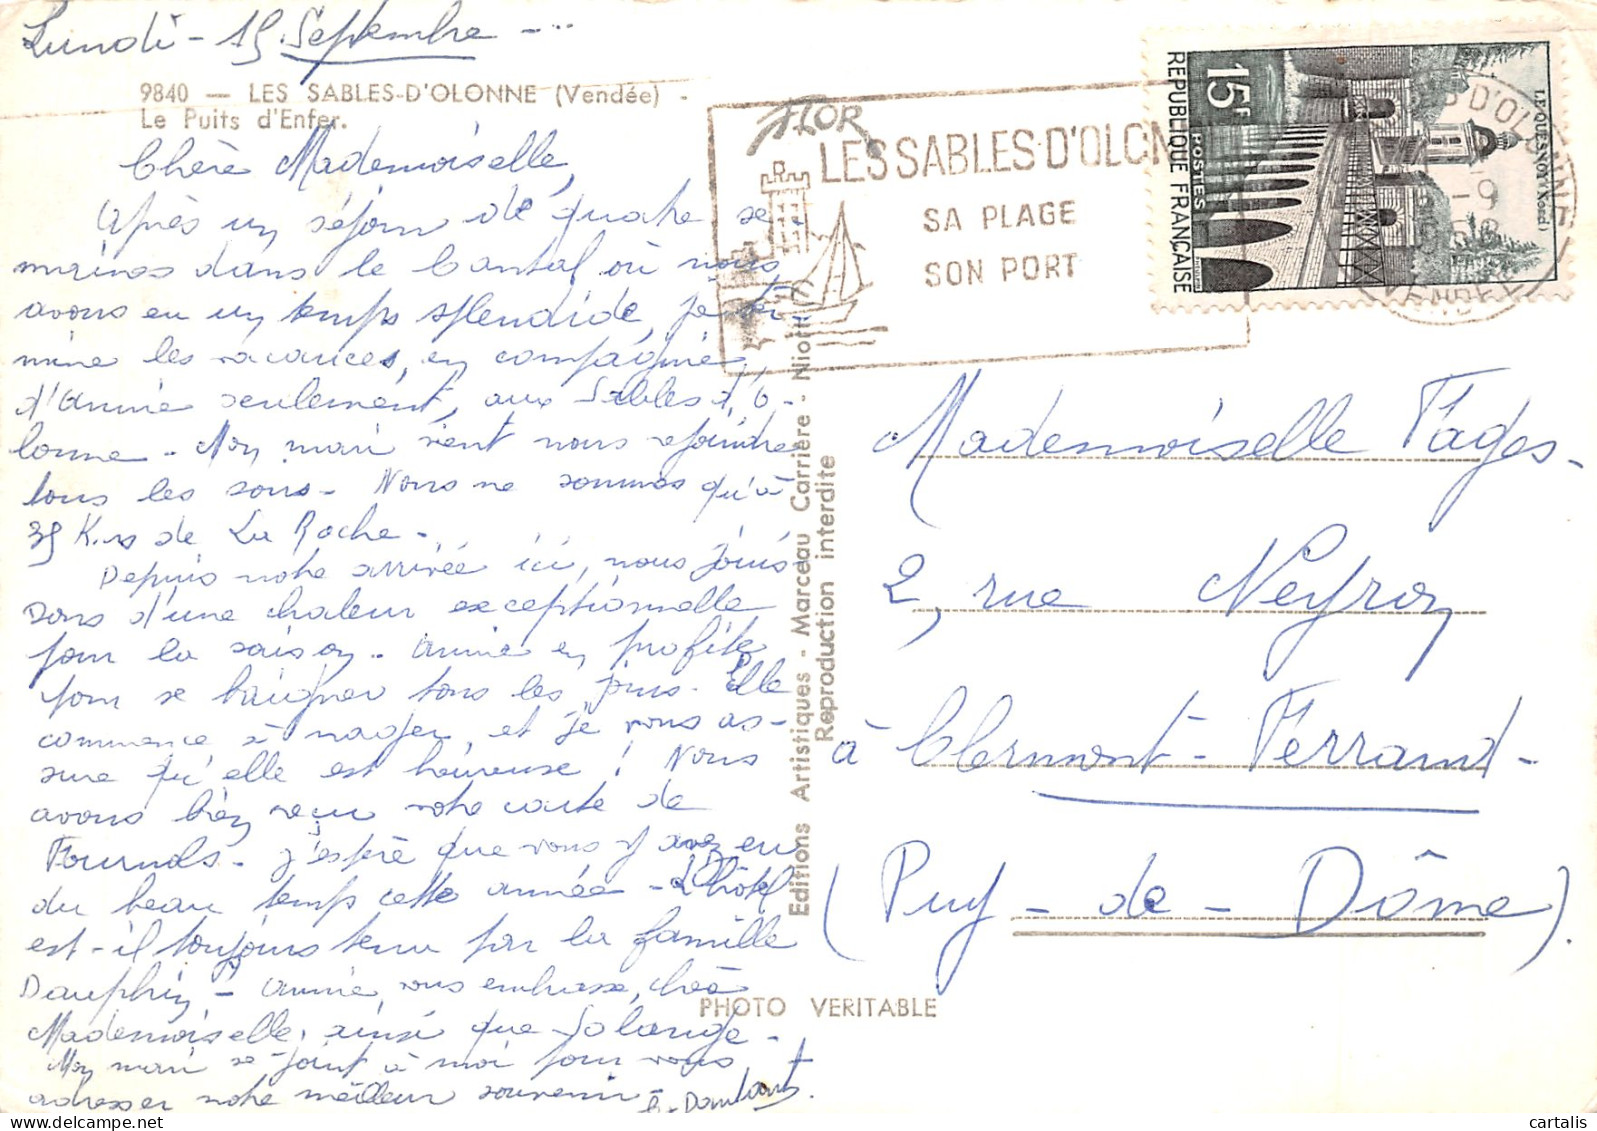 Lundi - 15 Septembre - ...
9840 — LES SABLES-D'OLONNE (Vendée) -
Le Puits d'Enfer.
Chère Mademoiselle,
Après un séjour de quatre se-
maines dans le Cantal où nous
avons eu un temps splendide, je ter-
mine les vacances, en compagnie
d'Annie seulement, aux Sables d'O-
lonne - Mon mari vient nous rejoindre
tous les soirs - Nous ne sommes qu'à
35 Kms de La Roche -
Depuis notre arrivée ici, nous jouis
sons d'une chaleur exceptionnelle
pour la saison - Annie en profite
pour se baigner tous les jours - Elle
commence à nager, et je vous as-
sure qu'elle est heureuse ! Nous
avons bien reçu votre carte de
Fournols - J'espère que vous y avez eu
du beau temps cette année - L'hôtel
est-il toujours tenu par la famille
Dauphin - Annie vous embrasse, chère
Mademoiselle, ainsi que Solange -
Mon mari se joint à moi pour vous
adresser notre meilleur souvenir -
Editions Artistiques - Marceau Carrière - Niort
Reproduction interdite
PHOTO VERITABLE
LES SABLES D'OLON
SA PLAGE
SON PORT
15F
POSTES
REPUBLIQUE FRANÇAISE
LE QUESNOY (Nord)
VENDEE
Mademoiselle Fages -
2, rue Neyron
à Clermont-Ferrand -
(Puy-de-Dôme).
cartalis